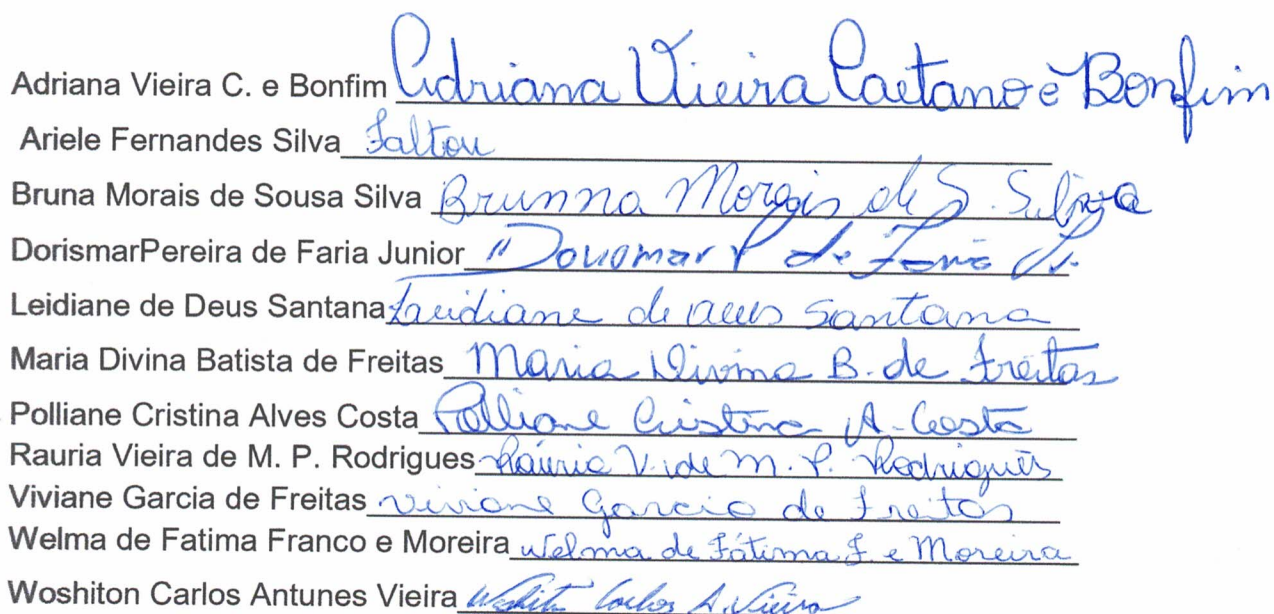 Adriana Vieira C. e Bonfim Adriana Vieira Caetano e Bonfim
Ariele Fernandes Silva Faltou
Bruna Morais de Sousa Silva Brunna Morais de S. Silva
DorismarPereira de Faria Junior Dorismar P de Faria Jr.
Leidiane de Deus Santana Leidiane de Deus Santana
Maria Divina Batista de Freitas Maria Divina B. de Freitas
Polliane Cristina Alves Costa Polliane Cristina A. Costa
Rauria Vieira de M. P. Rodrigues Rauria V. de M. P. Rodrigues
Viviane Garcia de Freitas Viviane Garcia de Freitas
Welma de Fatima Franco e Moreira Welma de Fátima F. e Moreira
Woshiton Carlos Antunes Vieira Carlos A. Vieira